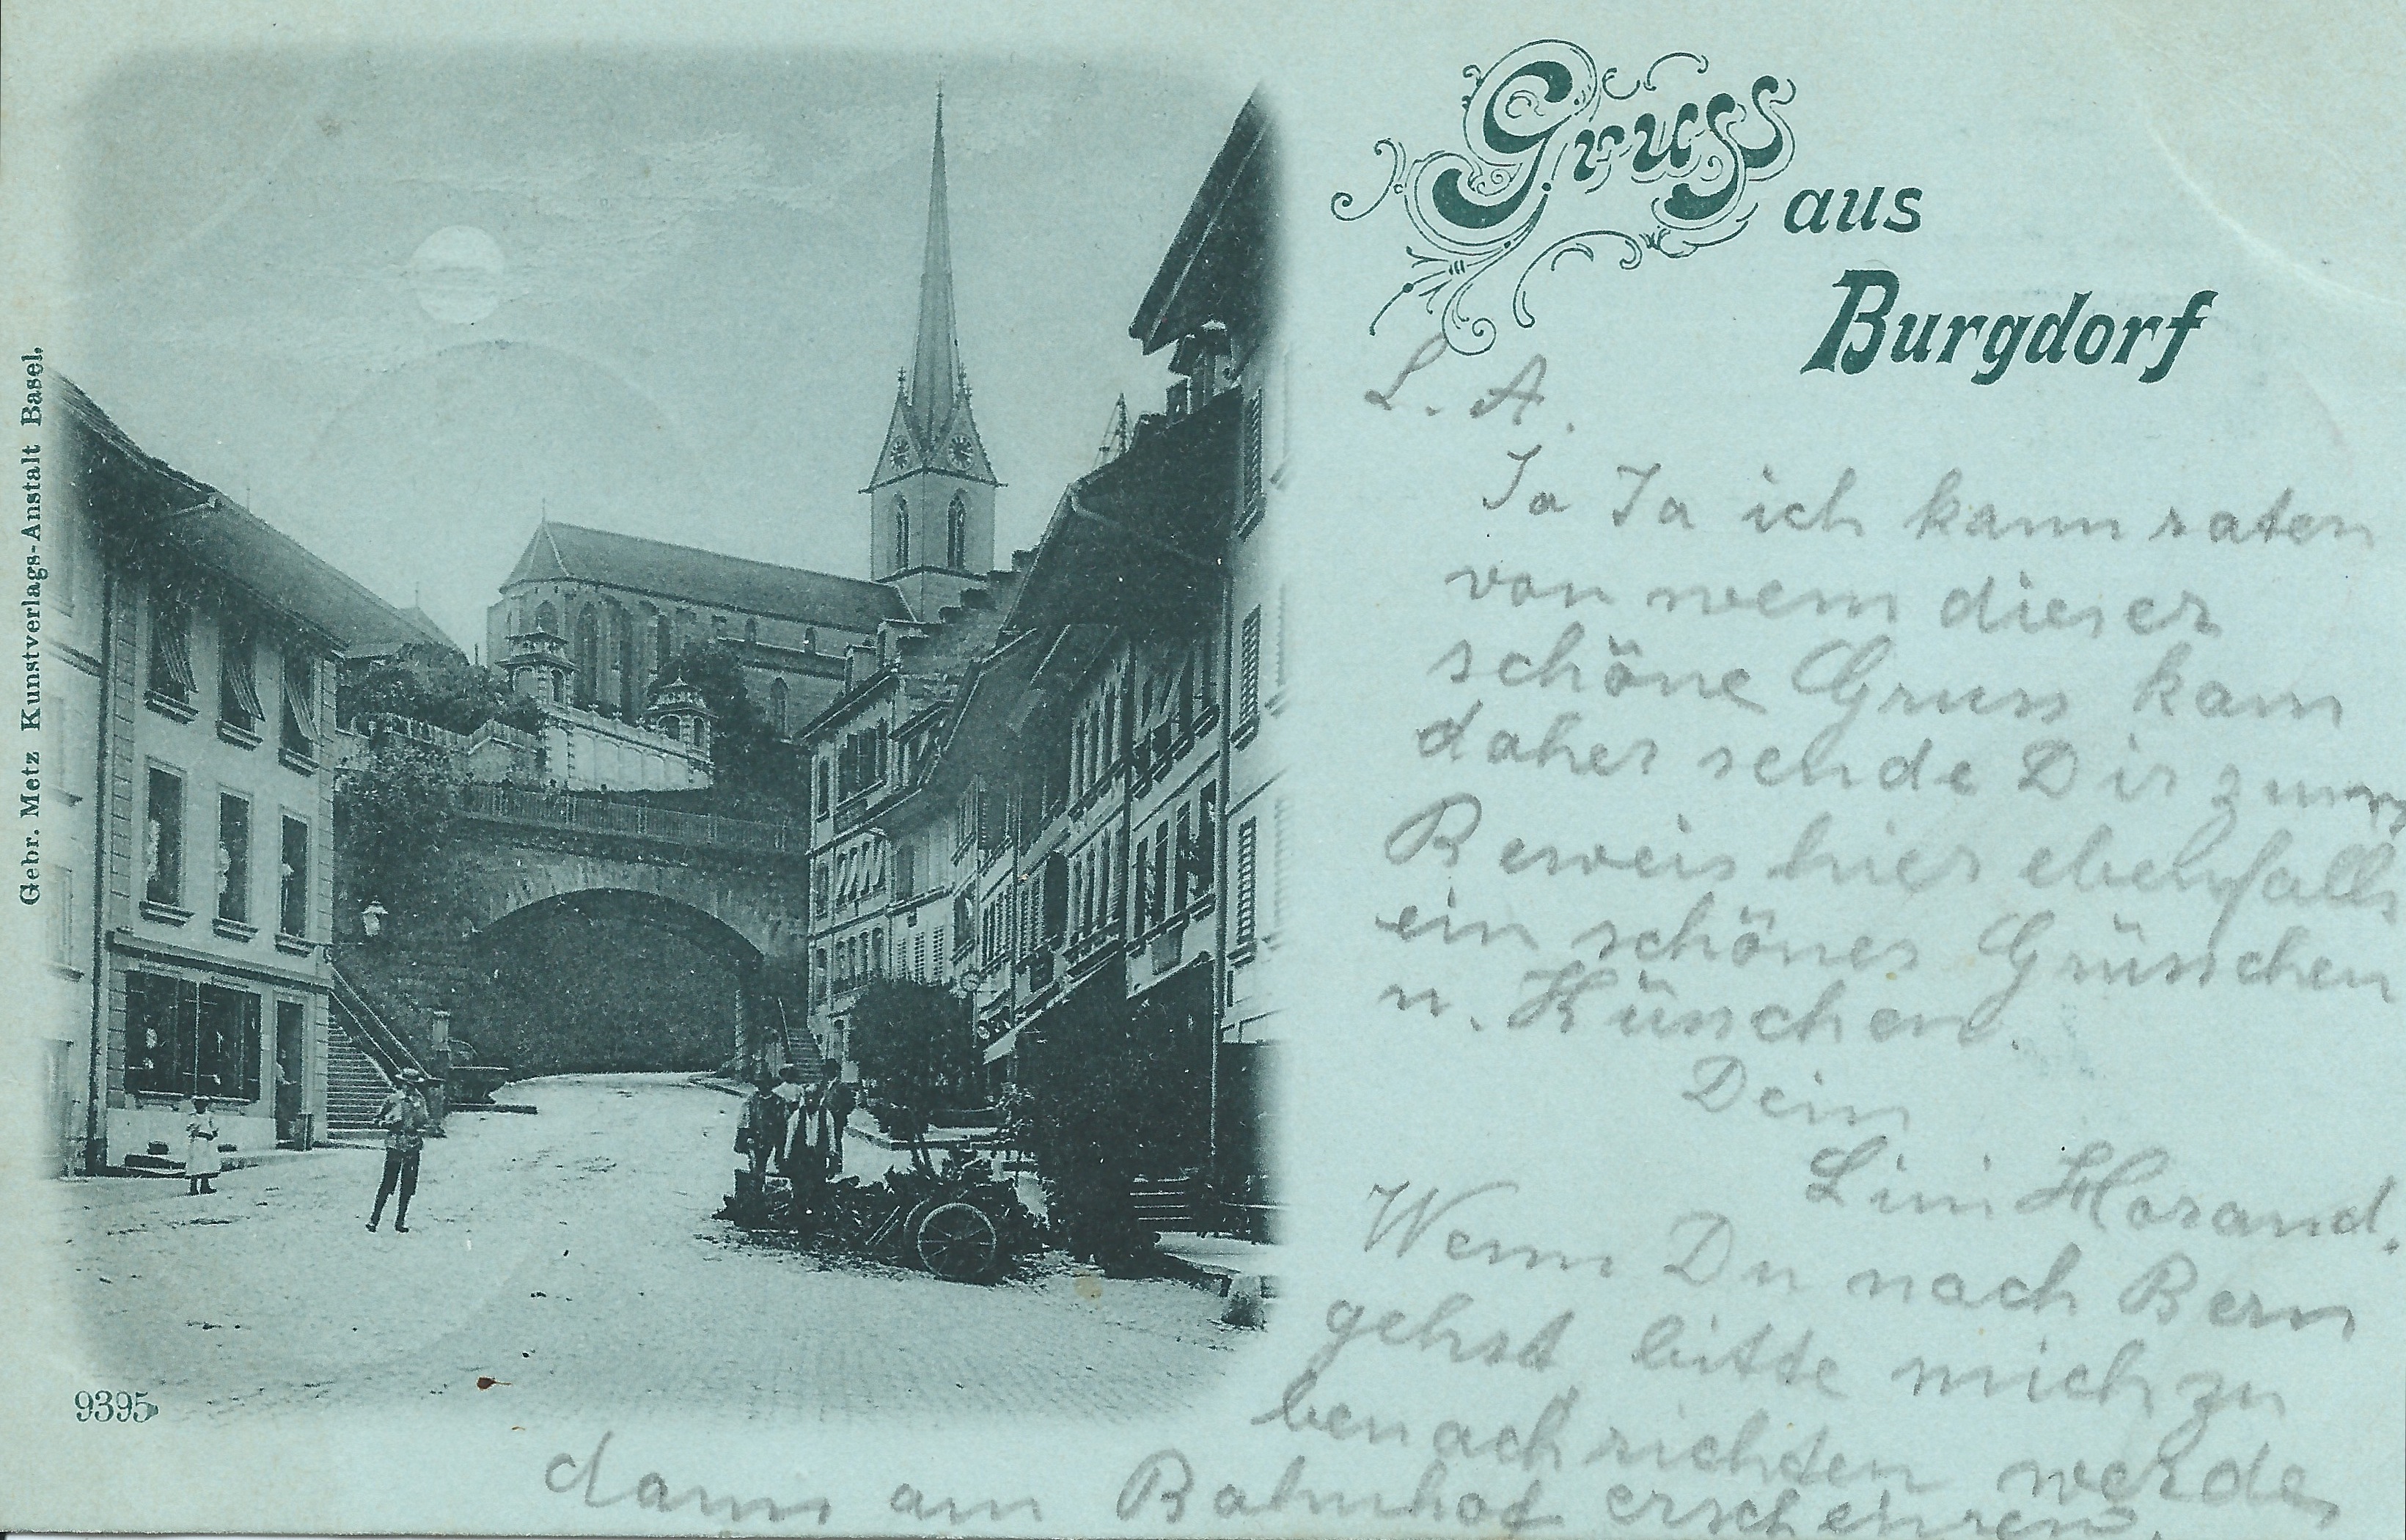 Gruss
aus
Burgdorf
L. A.
Ja Ja ich kann raten
von wem dieser
schöne Gruss kam
daher sende Dir zum
Beweis hier ebenfalls
ein schönes Grüsschen
u. Küsschen.
Dein
Lini Morand.
Wenn Du nach Bern
gehst bitte mich zu
benachrichten werde
dann am Bahnhof erscheinen.
Gebr. Metz Kunstverlags-Anstalt Basel.
9395